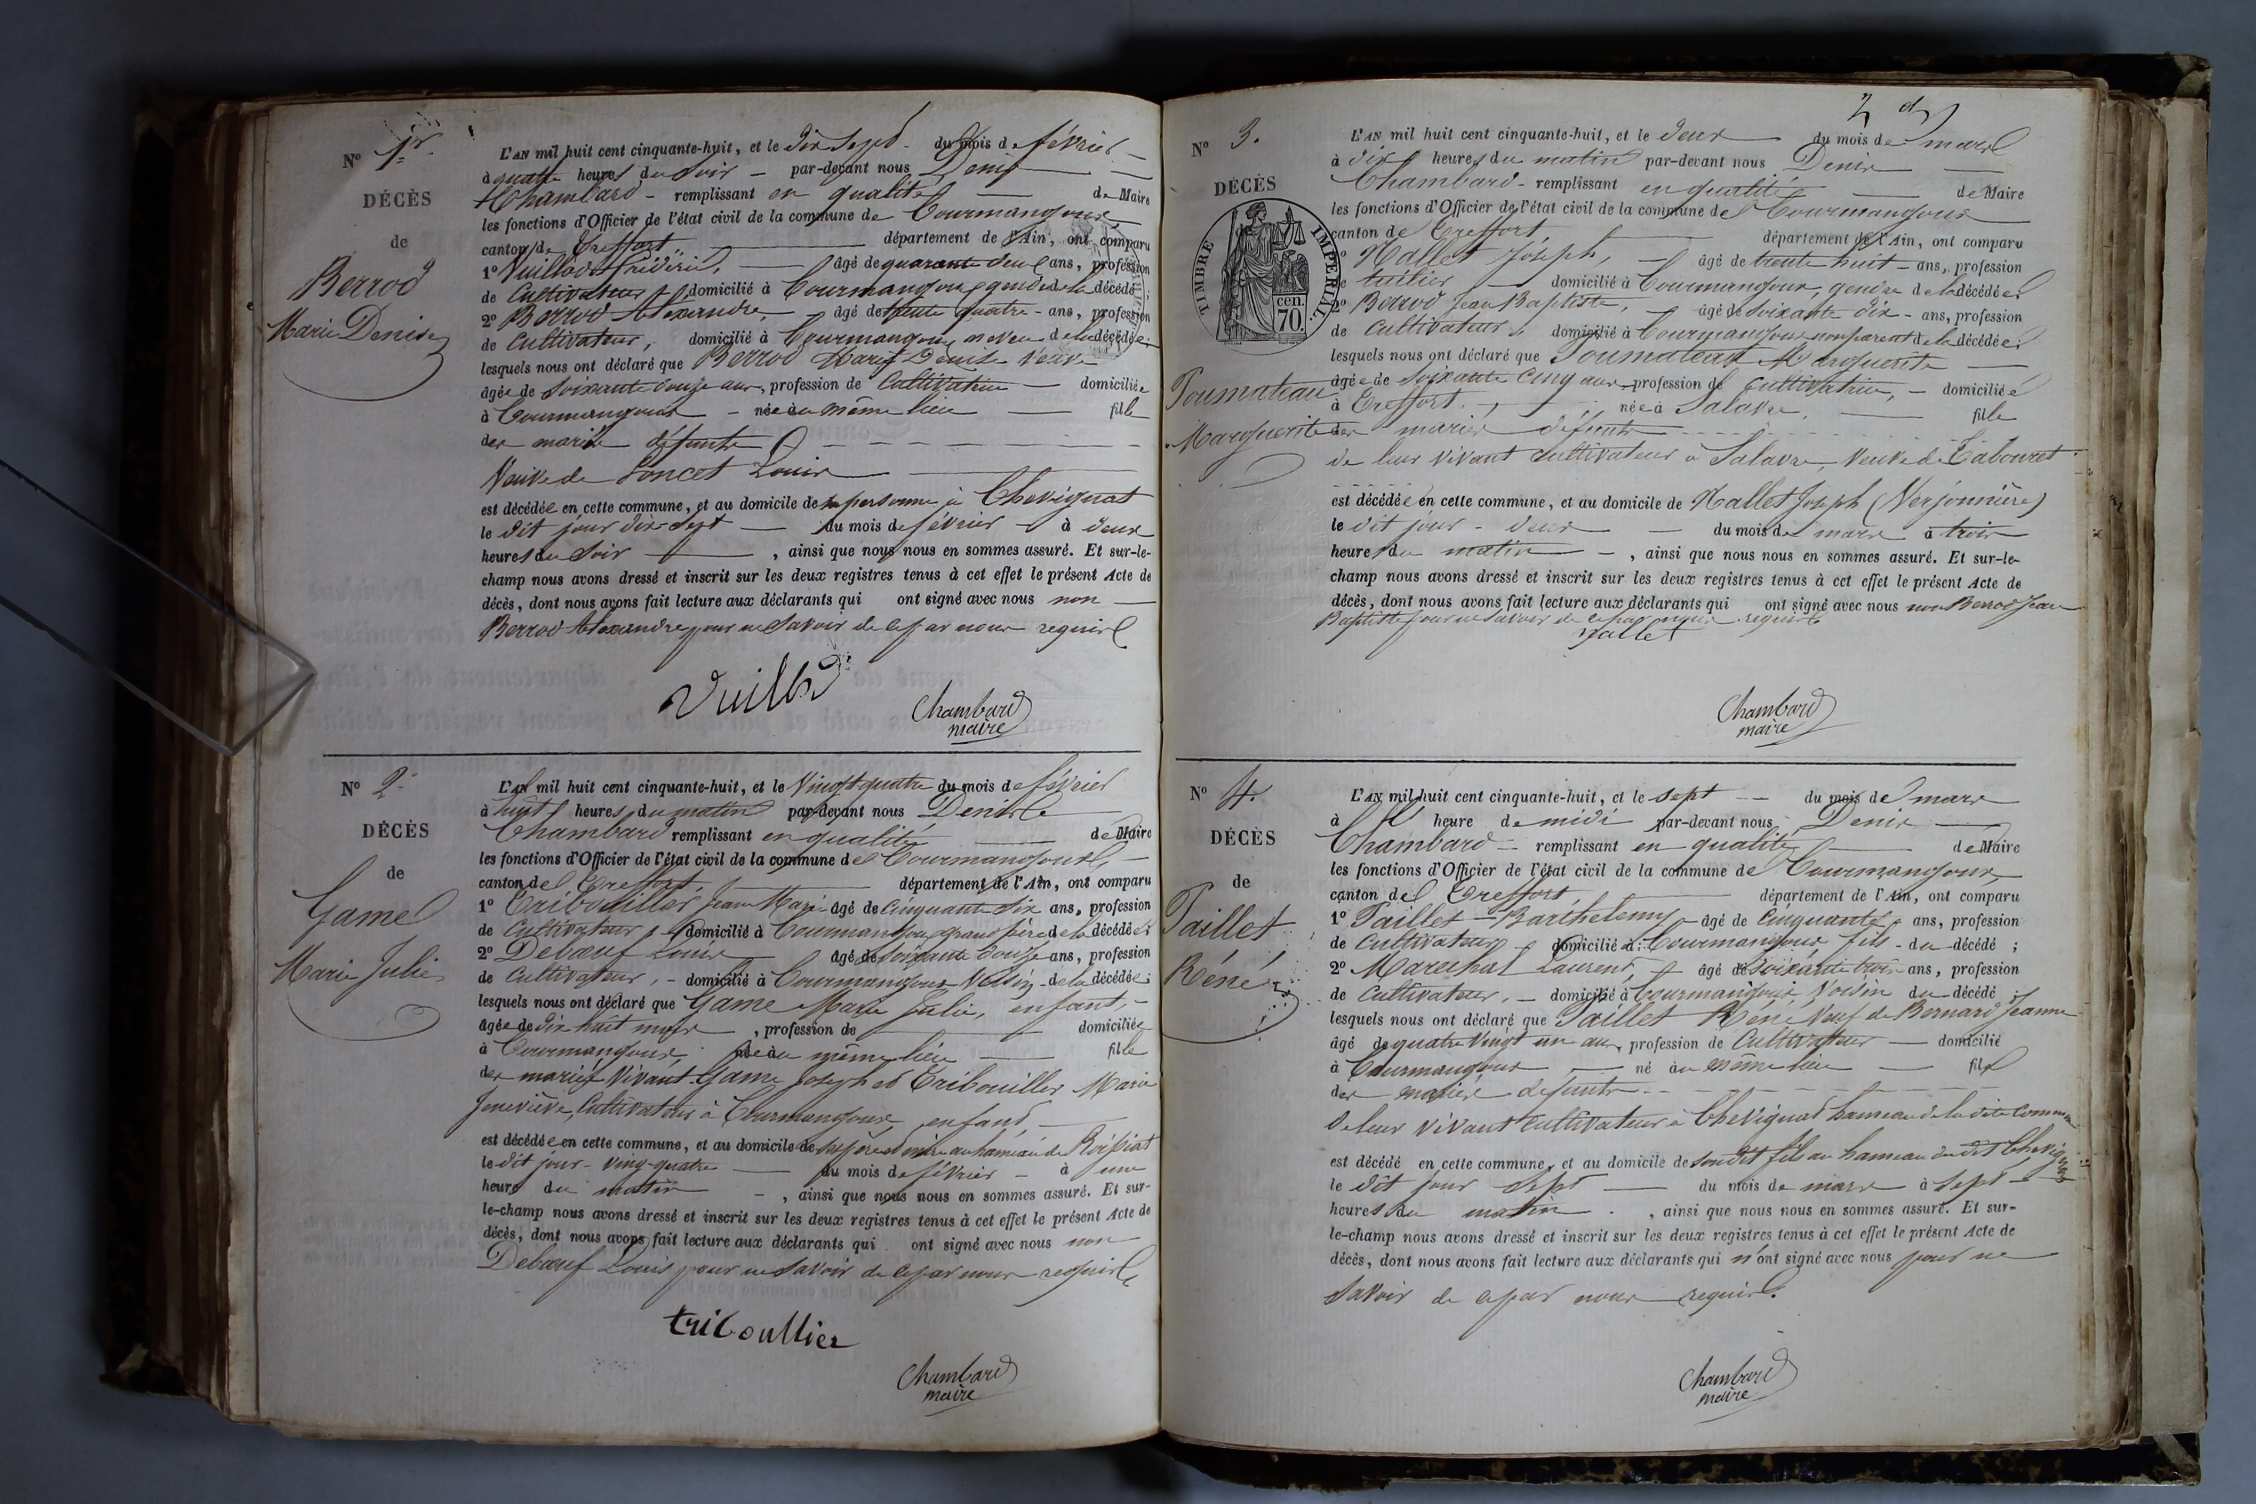 Nº 1er
DÉCÈS
de
Berrod
Marie Denise
L'AN mil huit cent cinquante-huit, et le dix sept du mois de février
à quatre heures du soir par-devant nous Denis
Chambard remplissant en qualité de Maire
les fonctions d'Officier de l'état civil de la commune de Courmangoux
canton de Treffort département de l'Ain, ont comparu
1º Vuillod Frédéric, âgé de quarante deux ans, profession
de Cultivateur domicilié à Courmangoux gendre de la décédée;
2º Berrod Alexandre, âgé de trente quatre ans, profession
de Cultivateur, domicilié à Courmangoux neveu de la décédée;
lesquels nous ont déclaré que Berrod Marie Denise veuve
âgée de soixante douze ans, profession de Cultivatrice domiciliée
à Courmangoux née au même lieu fille
des mariés défunts
Veuve de Poncet Louis
est décédée en cette commune, et au domicile de sa personne à Chevignat
le dit jour dix sept du mois de février à deux
heures du soir, ainsi que nous nous en sommes assuré. Et sur-le-
champ nous avons dressé et inscrit sur les deux registres tenus à cet effet le présent Acte de
décès, dont nous avons fait lecture aux déclarants qui ont signé avec nous non
Berrod Alexandre pour ne savoir de ce par nous requis
Vuillod
Chambard
maire
Nº 2
DÉCÈS
de
Game
Marie Julie
L'AN mil huit cent cinquante-huit, et le vingt quatre du mois de février
à huit heures du matin par-devant nous Denis
Chambard remplissant en qualité de Maire
les fonctions d'Officier de l'état civil de la commune de Courmangoux
canton de Treffort département de l'Ain, ont comparu
1º Tribouiller Jean Marie âgé de cinquante six ans, profession
de Cultivateur domicilié à Courmangoux grand père de la décédée;
2º Debœuf Louis âgé de soixante douze ans, profession
de Cultivateur, domicilié à Courmangoux voisin de la décédée;
lesquels nous ont déclaré que Game Marie Julie, enfant,
âgée de dix huit mois, profession de domiciliée
à Courmangoux, née au même lieu fille
des mariés vivant Game Joseph et Tribouiller Marie
Jeneviève, Cultivateurs à Courmangoux, enfant,
est décédée en cette commune, et au domicile de ses père et mère au hameau de Roissiat
le dit jour vingt-quatre du mois de février à une
heure du matin, ainsi que nous nous en sommes assuré. Et sur-
le-champ nous avons dressé et inscrit sur les deux registres tenus à cet effet le présent Acte de
décès, dont nous avons fait lecture aux déclarants qui ont signé avec nous non
Debœuf Louis pour ne savoir de ce par nous requis
triboullier
Chambard
maire
2
Nº 3.
DÉCÈS
TIMBRE IMPÉRIAL.
cen.
70.
Toumateau
Marguerite
L'AN mil huit cent cinquante-huit, et le deux du mois de mars
à dix heures du matin par-devant nous Denis
Chambard remplissant en qualité de Maire
les fonctions d'Officier de l'état civil de la commune de Courmangoux
canton de Treffort département de l'Ain, ont comparu
1º Nallet Joseph, âgé de trente huit ans, profession
de tuilier domicilié à Courmangoux, gendre de la décédée;
2º Berrod Jean Baptiste, âgé de soixante dix ans, profession
de Cultivateur, domicilié à Courmangoux non parent de la décédée;
lesquels nous ont déclaré que Toumateau Marguerite
âgée de soixante cinq ans, profession de Cultivatrice, domiciliée
à Treffort, née à Salavre, fille
des mariés défunts
de leur vivant Cultivateurs à Salavre, veuve de Tabouret
est décédée en cette commune, et au domicile de Nallet Joseph (Verjonnière)
le dit jour deux du mois de mars à trois
heures du matin, ainsi que nous nous en sommes assuré. Et sur-le-
champ nous avons dressé et inscrit sur les deux registres tenus à cet effet le présent Acte de
décès, dont nous avons fait lecture aux déclarants qui ont signé avec nous non Berrod Jean
Baptiste pour ne savoir de ce par nous requis
nallet
Chambard
maire
Nº 4.
DÉCÈS
de
Paillet
Réné
L'AN mil huit cent cinquante-huit, et le sept du mois de mars
à l' heure de midi par-devant nous Denis
Chambard remplissant en qualité de Maire
les fonctions d'Officier de l'état civil de la commune de Courmangoux
canton de Treffort, département de l'Ain, ont comparu
1º Paillet Barthelemy âgé de cinquante ans, profession
de Cultivateur domicilié à Courmangoux fils du décédé;
2º Marechal Laurent, âgé de soixante trois ans, profession
de Cultivateur, domicilié à Courmangoux voisin du décédé;
lesquels nous ont déclaré que Paillet Réné veuf de Bernard Jeanne
âgé de quatre vingt un ans, profession de Cultivateur domicilié
à Courmangoux né au même lieu fils
des mariés défunts
de leur vivant Cultivateurs à Chevignat hameau de la dite Commune
est décédé en cette commune, et au domicile de son dit fils au hameau du dit Chevignat
le dit jour sept du mois de mars à sept
heures du matin, ainsi que nous nous en sommes assuré. Et sur-
le-champ nous avons dressé et inscrit sur les deux registres tenus à cet effet le présent Acte de
décès, dont nous avons fait lecture aux déclarants qui n'ont signé avec nous pour ne
savoir de ce par nous requis.
Chambard
maire